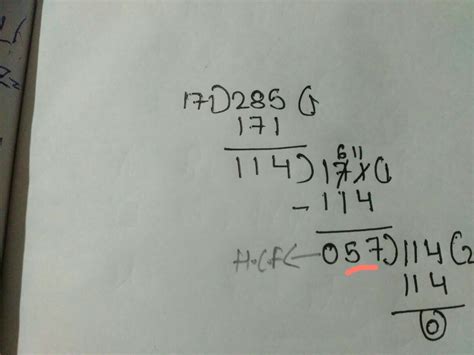 171)285(1
171
6 11
114)171(1
- 114
H.C.F ← 057)114(2
114
0